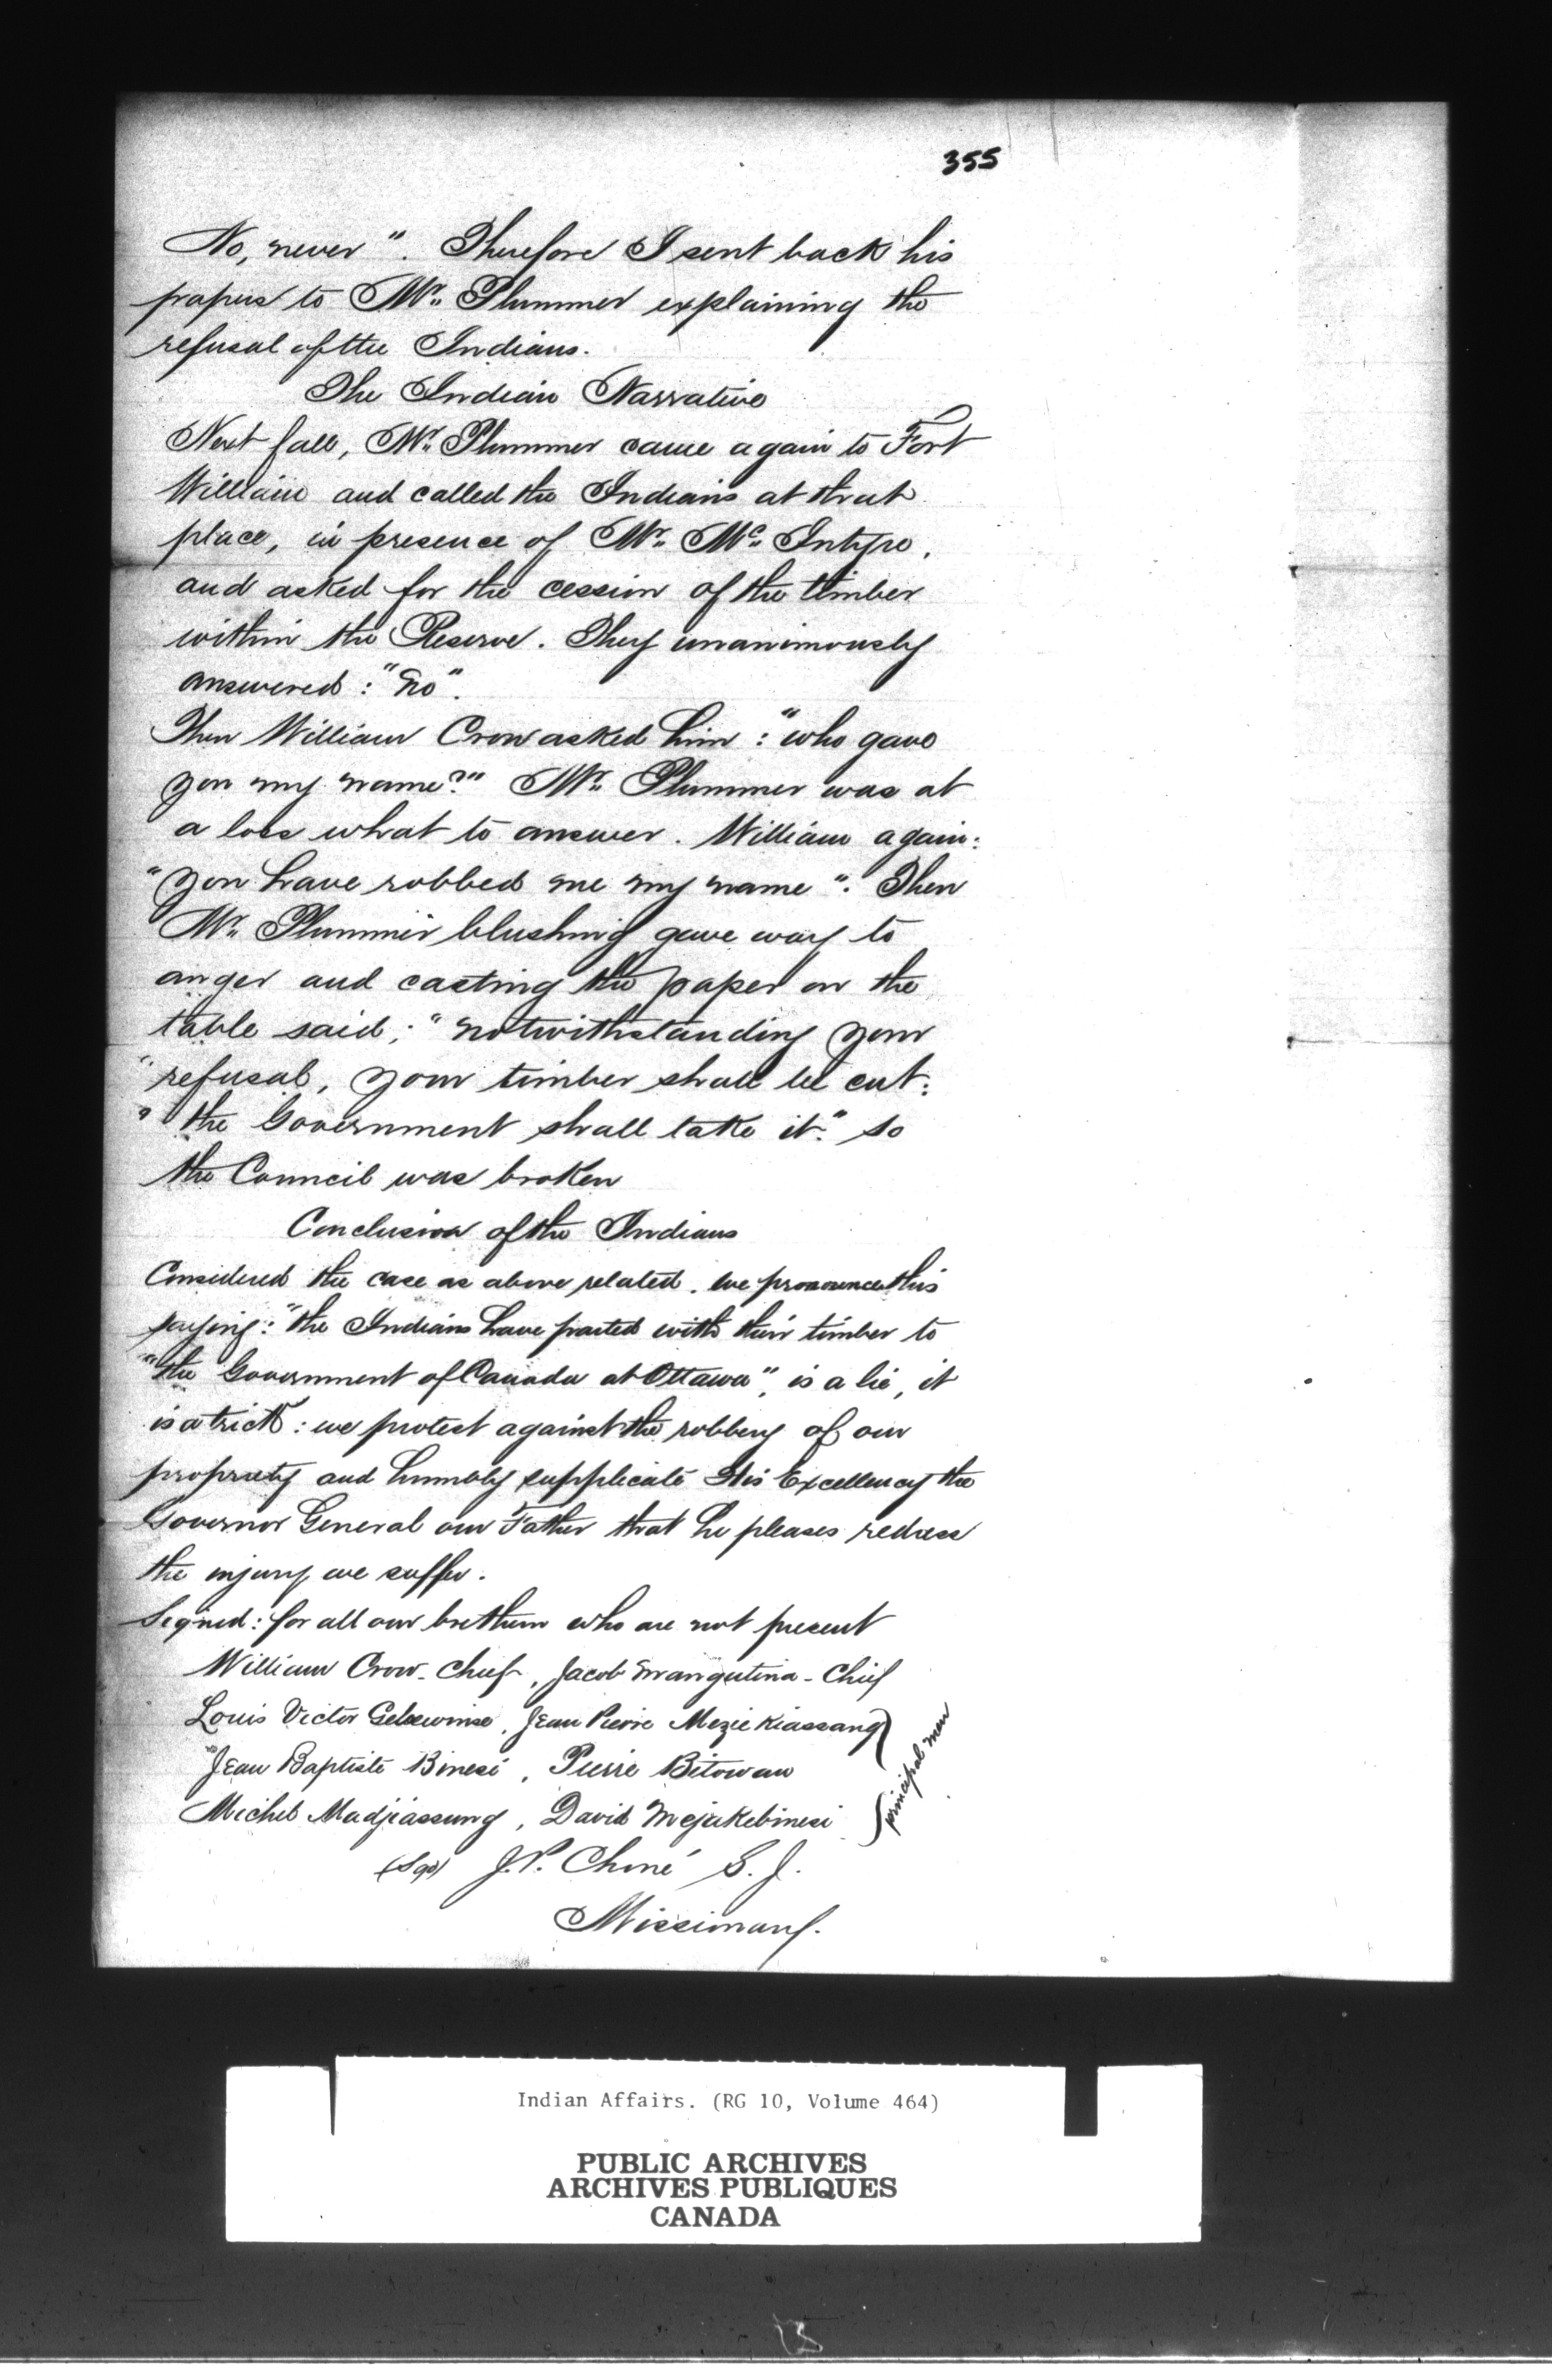 355
No, never". Therefore I sent back his
papers to Mr. Plummer explaining the
refusal of the Indians.
The Indian Narrative
Next fall, Mr. Plummer came again to Fort
William and called the Indians at that
place, in presence of Mr. Mc. Intyre,
and asked for the cession of the timber
within the Reserve. They unanimously
answered: "No".
Then William Crow asked him: "who gave
you my name?" Mr. Plummer was at
a loss what to answer. William again:
"You have robbed me my name". Then
Mr. Plummer blushing gave way to
anger and casting the paper on the
table said; "notwithstanding your
"refusal, your timber shall be cut:
"the Government shall take it." So
the Council was broken
Conclusion of the Indians
Considered the case as above related. we pronounce this
saying: "the Indians have parted with their timber to
"the Government of Canada at Ottawa", is a lie, it
is a trick: we protest against the robbery of our
propriety and humbly supplicate His Excellency the
Governor General our Father that he pleases redress
the injury we suffer.
Signed: for all our brethern who are not present
William Crow - Chief, Jacob - Chief
Louis Victor, Jean Pierre Mezie Kiassang
Jean Baptiste Binesi, Pierre Bitowan
Michel Madjiassung, David Mejakebinesi
principal men
(Sgd) J.P. Choné S.J.
Missimany.
Indian Affairs. (RG 10, Volume 464)
PUBLIC ARCHIVES
ARCHIVES PUBLIQUES
CANADA